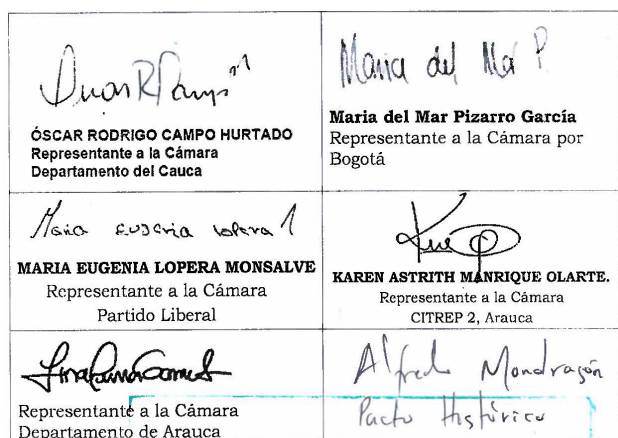 ÓSCAR RODRIGO CAMPO HURTADO
Representante a la Cámara
Departamento del Cauca
Maria del Mar P.
Maria del Mar Pizarro García
Representante a la Cámara por
Bogotá
Maria Eugenia Lopera
MARIA EUGENIA LOPERA MONSALVE
Representante a la Cámara
Partido Liberal
KAREN ASTRITH MANRIQUE OLARTE.
Representante a la Cámara
CITREP 2, Arauca
Representante a la Cámara
Departamento de Arauca
Alfredo Mondragón
Pacto Histórico